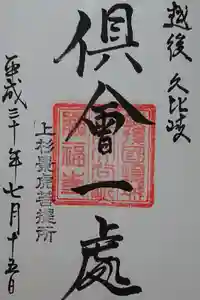 越後 久比岐
俱會一處
上杉景虎菩提所
平成三十年七月十五日